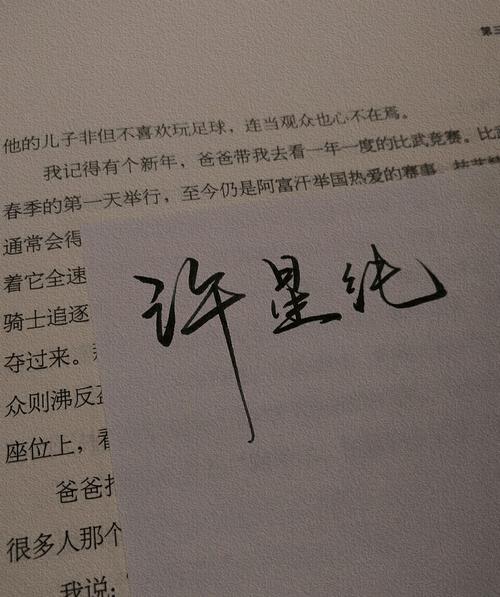 第三
他的儿子非但不喜欢玩足球，连当观众也心不在焉。
我记得有个新年，爸爸带我去看一年一度的比武竞赛。比
春季的第一天举行，至今仍是阿富汗举国热爱的赛事。
通常会得
着它全速
骑士追逐
夺过来。
众则沸反
座位上，看
爸爸
很多人那个
我说：
许星纯